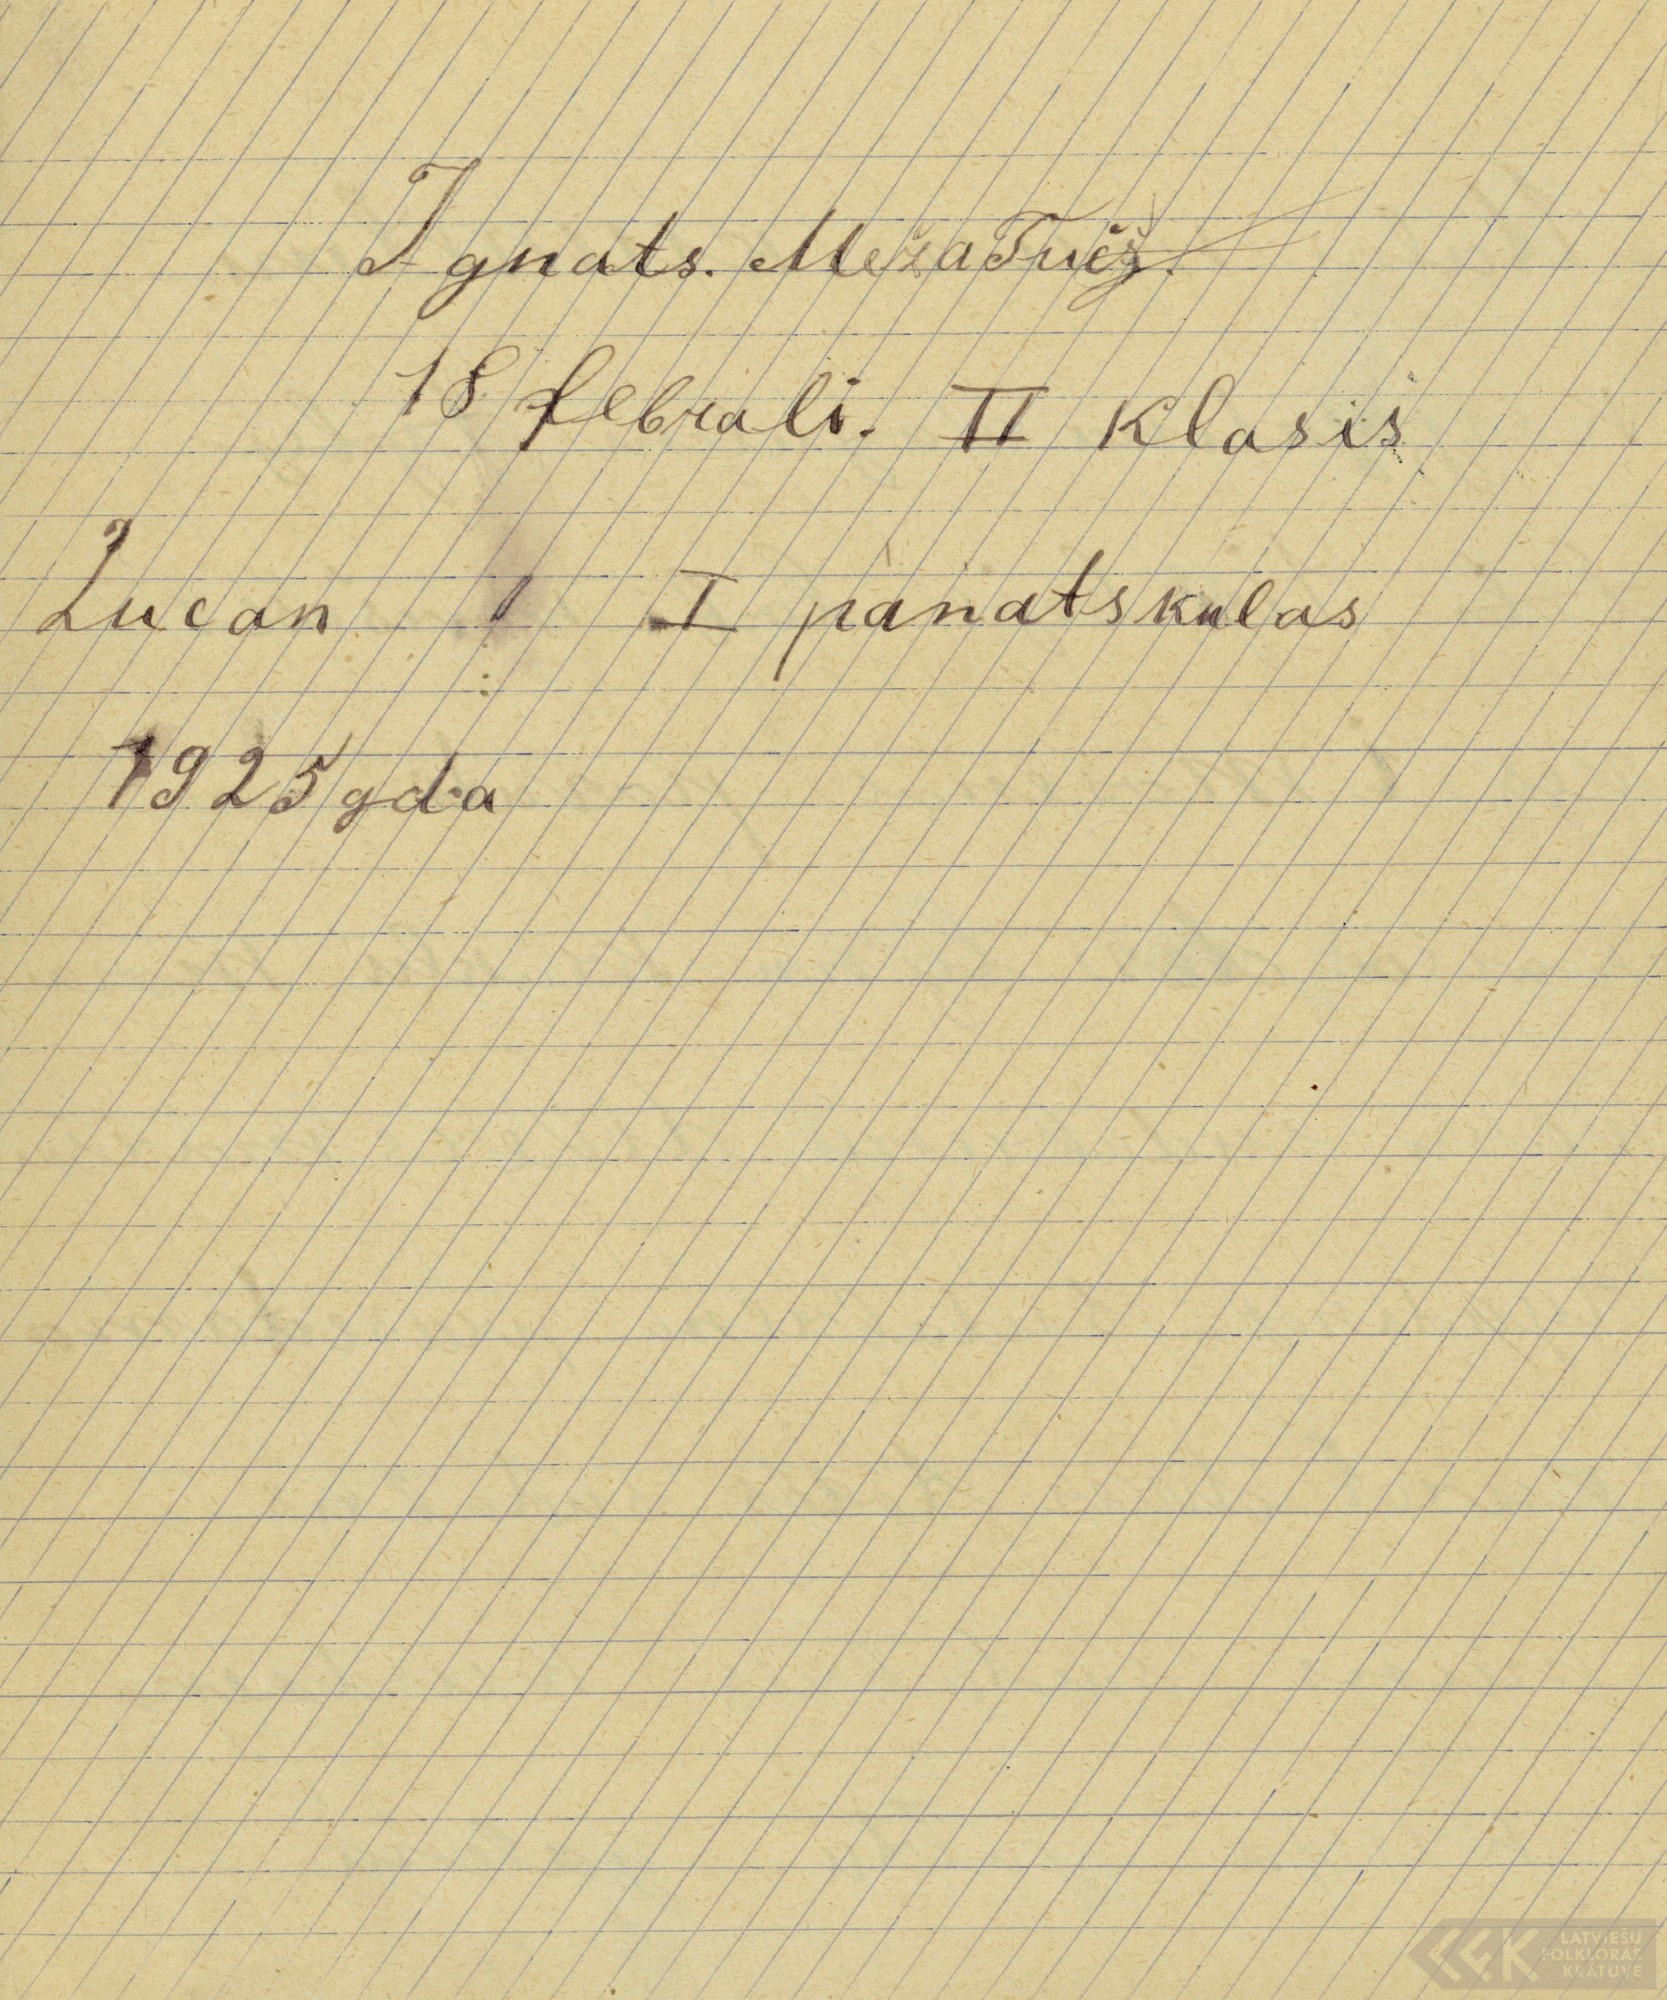 Ignats. MežaTučš.
18 febrali. II Klasis
Lucan I panatskulas
1925 gda
LFK LATVIEŠU
FOLKLORAS
KRĀTUVE